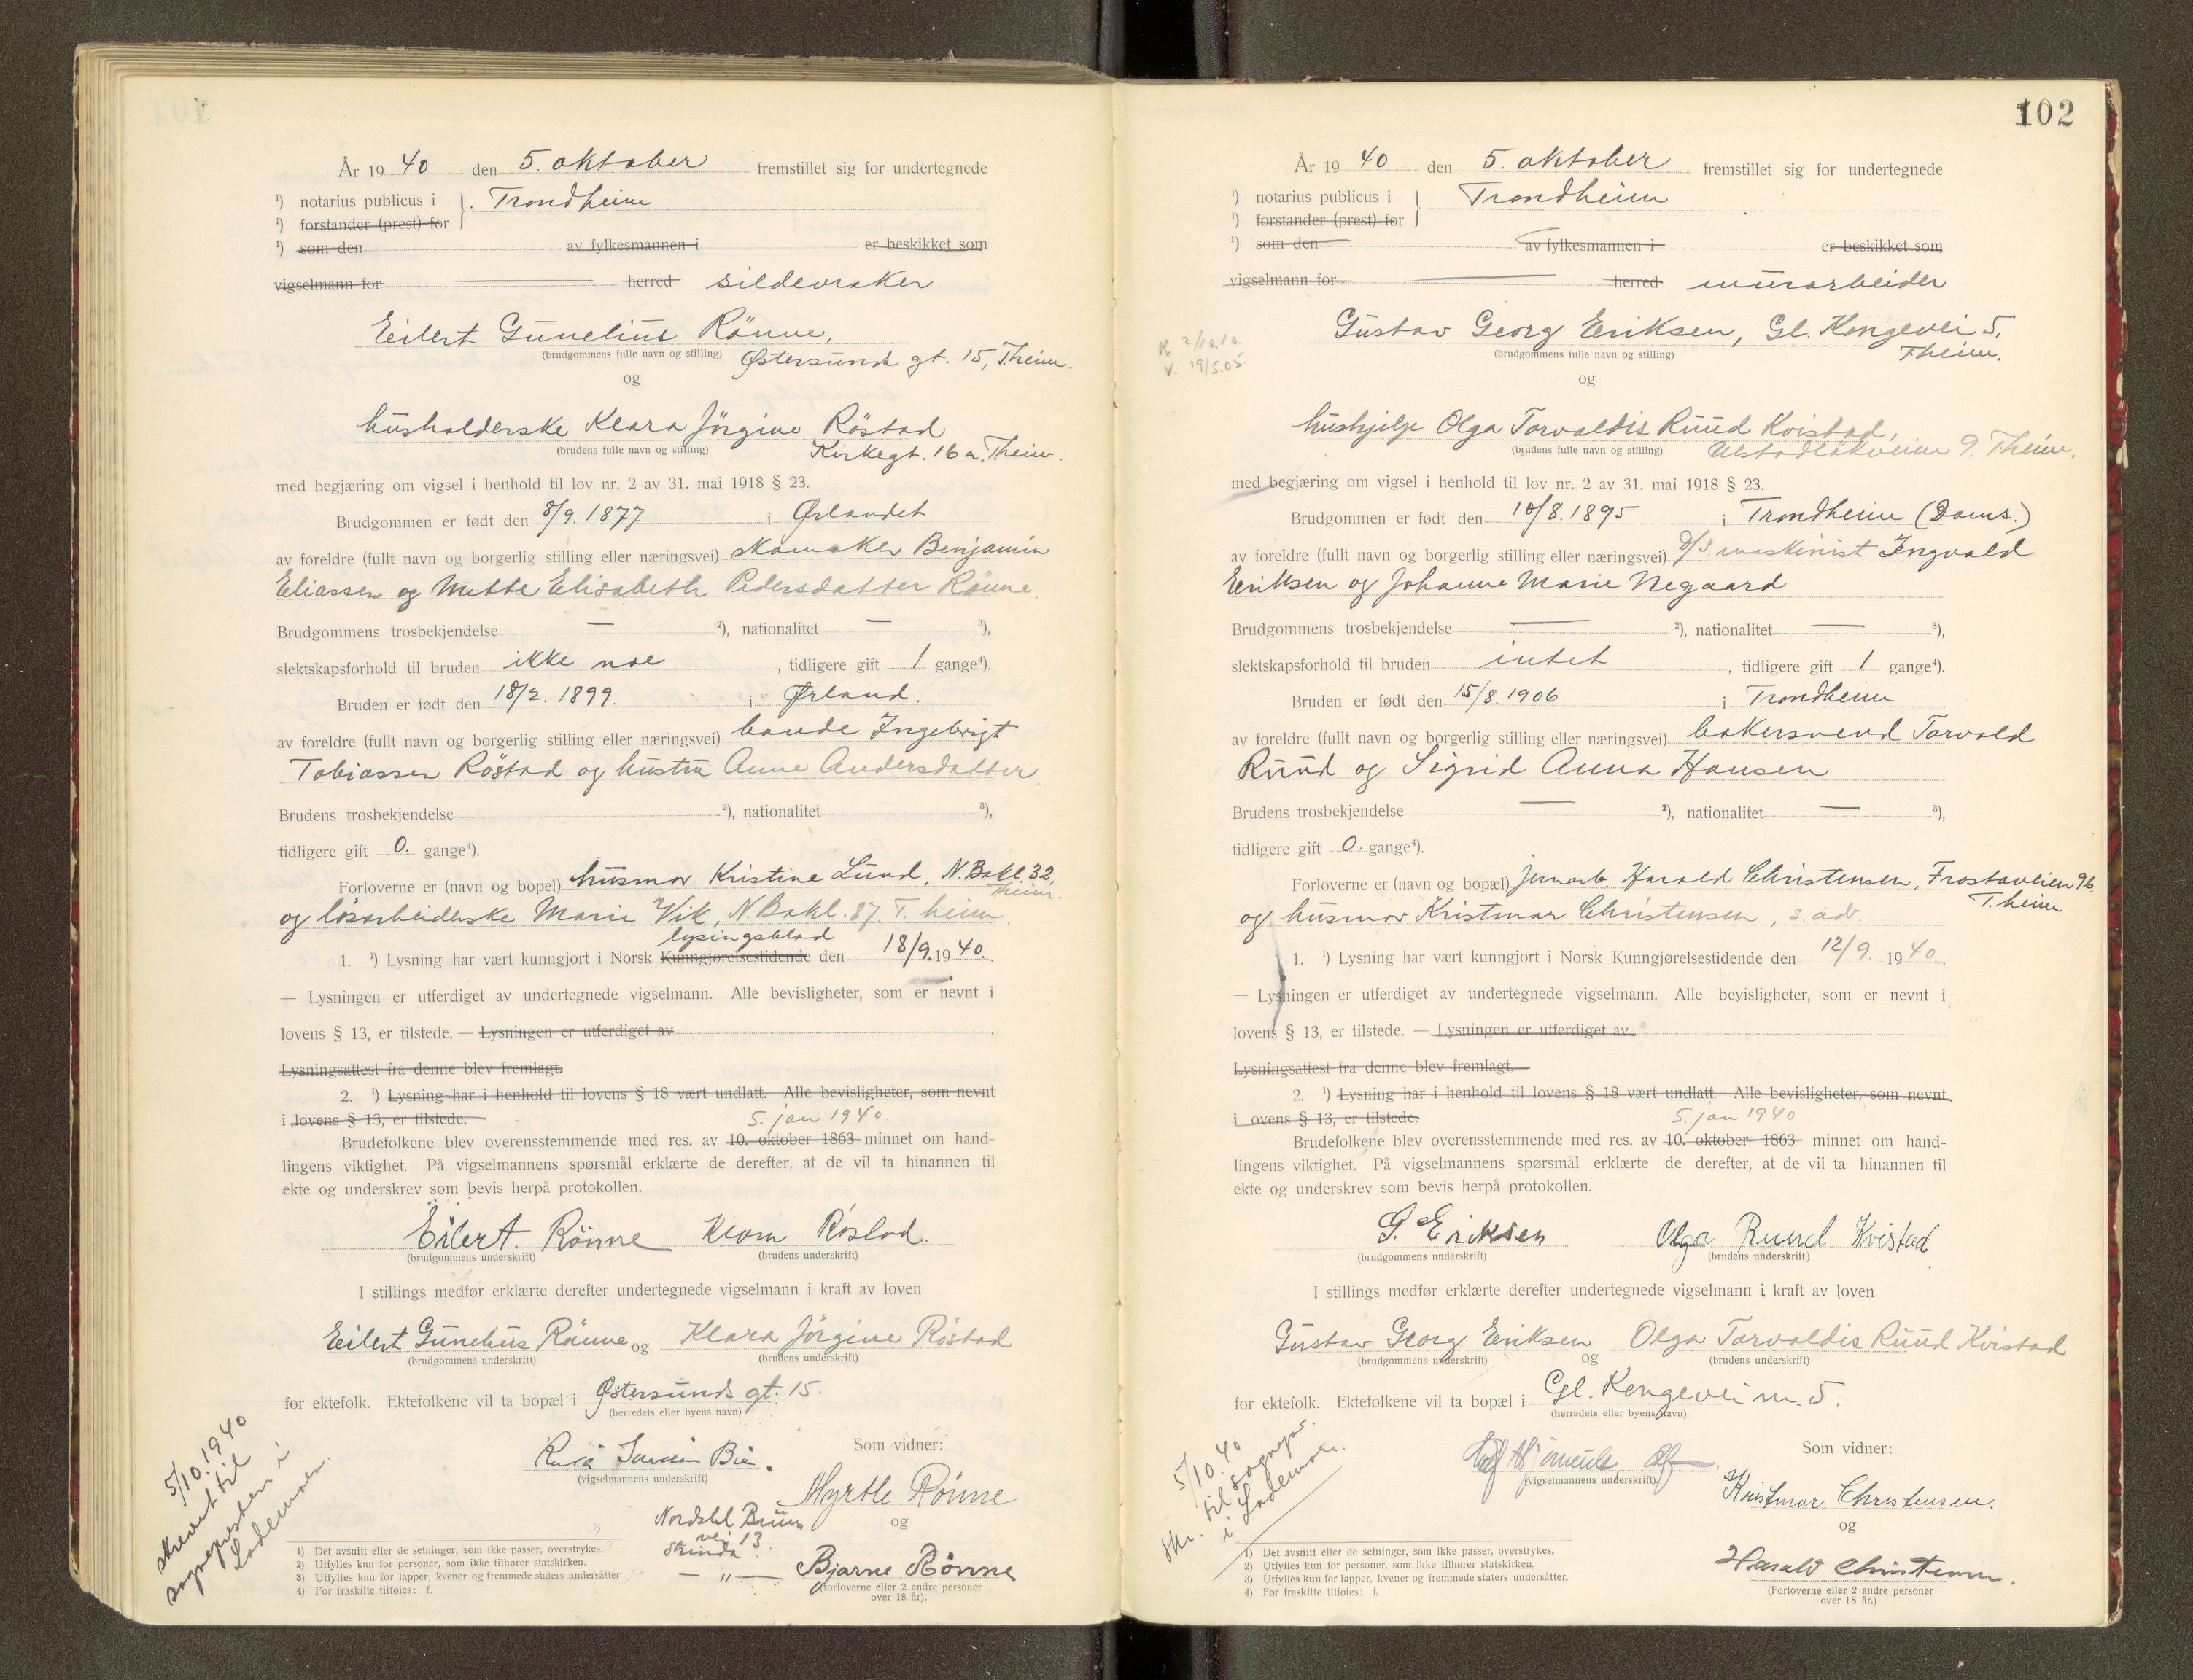 År 1940 den 5. oktober fremstillet sig for undertegnede
¹) notarius publicus i } Trondheim
¹) forstander (prest) for
¹) som den av fylkesmannen i er beskikket som
vigselmann for herred sildevraker
Eilert Gunelius Rönne,
(brudgommens fulle navn og stilling) Østersunds gt. 15, T.heim.
og
husholderske Klara Jörgine Röstad
(brudens fulle navn og stilling) Kirkegt. 16a, T.heim.
med begjæring om vigsel i henhold til lov nr. 2 av 31. mai 1918 § 23.
Brudgommen er født den 8/9. 1877 i Ørlandet
av foreldre (fullt navn og borgerlig stilling eller næringsvei) skomaker Benjamin
Eliassen og Mette Elisabeth Pedersdatter Rönne.
Brudgommens trosbekjendelse — ²), nationalitet — ³),
slektskapsforhold til bruden ikke noe , tidligere gift 1 gange⁴).
Bruden er født den 18/2. 1899. i Ørland.
av foreldre (fullt navn og borgerlig stilling eller næringsvei) bonde Ingebrigt
Tobiassen Röstad og hustru Anne Andersdatter
Brudens trosbekjendelse ²), nationalitet ³),
tidligere gift 0. gange⁴).
Forloverne er (navn og bopel) husmor Kristine Lund, N. Bakl. 32
T.heim.
og lösarbeiderske Marie Vik, N. Bakl. 87, T.heim.
lysingsblad
1. ¹) Lysning har vært kunngjort i Norsk Kunngjørelsestidende den 18/9. 1940.
— Lysningen er utferdiget av undertegnede vigselmann. Alle bevisligheter, som er nevnt i
lovens § 13, er tilstede. — Lysningen er utferdiget av
Lysningsattest fra denne blev fremlagt.
2. ¹) Lysning har i henhold til lovens § 18 vært undlatt. Alle bevisligheter, som nevnt
i lovens § 13, er tilstede. 5. jan 1940.
Brudefolkene blev overensstemmende med res. av 10. oktober 1863 minnet om hand-
lingens viktighet. På vigselmannens spørsmål erklærte de derefter, at de vil ta hinannen til
ekte og underskrev som bevis herpå protokollen.
Eilert. Rönne Klara Röstad.
(brudgommens underskrift) (brudens underskrift)
I stillings medfør erklærte derefter undertegnede vigselmann i kraft av loven
Eilert Gunelius Rönne og Klara Jörgine Röstad
(brudgommens underskrift) (brudens underskrift)
for ektefolk. Ektefolkene vil ta bopæl i Østersunds gt. 15.
(herredets eller byens navn)
Som vidner:
(vigselmannens underskrift)
Myrtle Rönne
Nordahl Bruns
vei 13 og
Strinda.
— „ — Bjarne Rönne
(forloverne eller 2 andre personer
over 18 år).
5/10.1940
skrevet til
sognepresten i
Lademoen.
1) Det avsnitt eller de setninger, som ikke passer, overstrykes.
2) Utfylles kun for personer, som ikke tilhører statskirken.
3) Utfylles kun for lapper, kvener og fremmede staters undersåtter
4) For fraskilte tilføies: f.
102
År 1940 den 5. oktober fremstillet sig for undertegnede
¹) notarius publicus i } Trondheim
¹) forstander (prest) for
¹) som den av fylkesmannen i er beskikket som
vigselmann for herred murarbeider
Gustav Georg Eriksen, Gl. Kongevei 5,
(brudgommens fulle navn og stilling) T.heim.
K. 2/10.10.
V. 19/5.05
og
hushjelp Olga Torvaldis Ruud Kvistad,
(brudens fulle navn og stilling) Ulstadløkveien 9, T.heim.
med begjæring om vigsel i henhold til lov nr. 2 av 31. mai 1918 § 23.
Brudgommen er født den 10/8. 1895 i Trondheim (Doms.)
av foreldre (fullt navn og borgerlig stilling eller næringsvei) D/S. maskinist Ingvald
Eriksen og Johanne Marie Negaard
Brudgommens trosbekjendelse — ²), nationalitet — ³),
slektskapsforhold til bruden intet , tidligere gift 1 gange⁴).
Bruden er født den 15/8. 1906 i Trondheim
av foreldre (fullt navn og borgerlig stilling eller næringsvei) bakersvend Torvald
Ruud og Sigrid Anna Hansen
Brudens trosbekjendelse — ²), nationalitet — ³),
tidligere gift 0. gange⁴).
Forloverne er (navn og bopæl) jernarb. Harald Christensen, Frostaveien 9b.
T.heim
og husmor Kristmar Christensen, s. adr.
1. ¹) Lysning har vært kunngjort i Norsk Kunngjørelsestidende den 12/9. 1940.
— Lysningen er utferdiget av undertegnede vigselmann. Alle bevisligheter, som er nevnt i
lovens § 13, er tilstede. — Lysningen er utferdiget av
Lysningsattest fra denne blev fremlagt.
2. ¹) Lysning har i henhold til lovens § 18 vært undlatt. Alle bevisligheter, som nevnt
i ovens § 13, er tilstede. 5. jan 1940
Brudefolkene blev overensstemmende med res. av 10. oktober 1863 minnet om hand-
lingens viktighet. På vigselmannens spørsmål erklærte de derefter, at de vil ta hinannen til
ekte og underskrev som bevis herpå protokollen.
G. Eriksen Olga Ruud Kvistad
(brudgommens underskrift) (brudens underskrift)
I stillings medfør erklærte derefter undertegnede vigselmann i kraft av loven
Gustav Georg Eriksen og Olga Torvaldis Ruud Kvistad
(brudgommens underskrift) (brudens underskrift)
for ektefolk. Ektefolkene vil ta bopæl i Gl. Kongevei nr. 5.
(herredets eller byens navn)
Som vidner:
(vigselmannens underskrift)
Kristmar Christensen.
og
Harald Christensen.
(Forloverne eller 2 andre personer
over 18 år.)
5/10.40
skr. til sognepr.
i Lademoen.
1) Det avsnitt eller de setninger, som ikke passer, overstrykes.
2) Utfylles kun for personer, som ikke tilhører statskirken.
3) Utfylles kun for lapper, kvener og fremmede staters undersåtter.
4) For fraskilte tilføies: f.